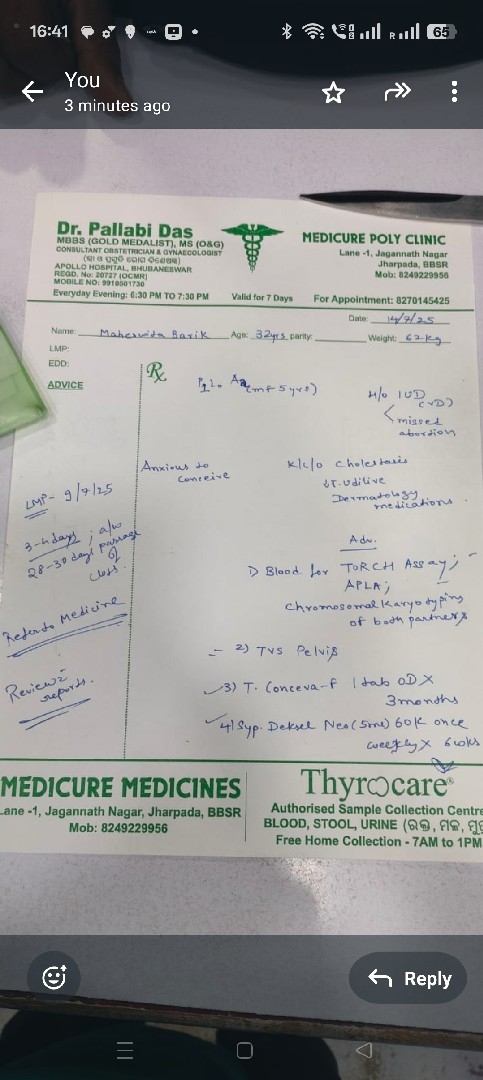 16:41
65
You
3 minutes ago
Dr. Pallabi Das
MBBS (GOLD MEDALIST), MS (O&G)
CONSULTANT OBSTETRICIAN & GYNAECOLOGIST
APOLLO HOSPITAL, BHUBANESWAR
REGD. No: 20727 (OCMR)
MOBILE NO: 9910501730
Everyday Evening: 6:30 PM TO 7:30 PM
Valid for 7 Days
MEDICURE POLY CLINIC
Lane -1, Jagannath Nagar
Jharpada, BBSR
Mob: 8249229956
For Appointment: 8270145425
Date: 14/7/25
Name: Barik Age: 32yrs parity: Weight: 62kg
LMP:
EDD:
ADVICE
Rx
(mf 5 yrs)
H/o IUD
(VD)
missed
abortion
Anxious to
conceive
K/c/o Cholestasis
Dermatology
medications.
LMP- 9/7/25
3-4days; a/w
28-30 days passage
of
clots.
Refer to Medicine
Review c̄
reports.
Adv.
1) Blood for TORCH Assay;
APLA;
Chromosomal Karyotyping
of both partners
2) TVS Pelvis
3) T. Conceva-F 1 tab OD X
3 months
4) Syp. Deksel Neo (5ml) 60K once
weekly X 6 wks
MEDICURE MEDICINES
Lane -1, Jagannath Nagar, Jharpada, BBSR
Mob: 8249229956
Thyrocare®
Authorised Sample Collection Centre
BLOOD, STOOL, URINE (ରକ୍ତ, ମଳ,
Free Home Collection - 7AM to 1PM
Reply